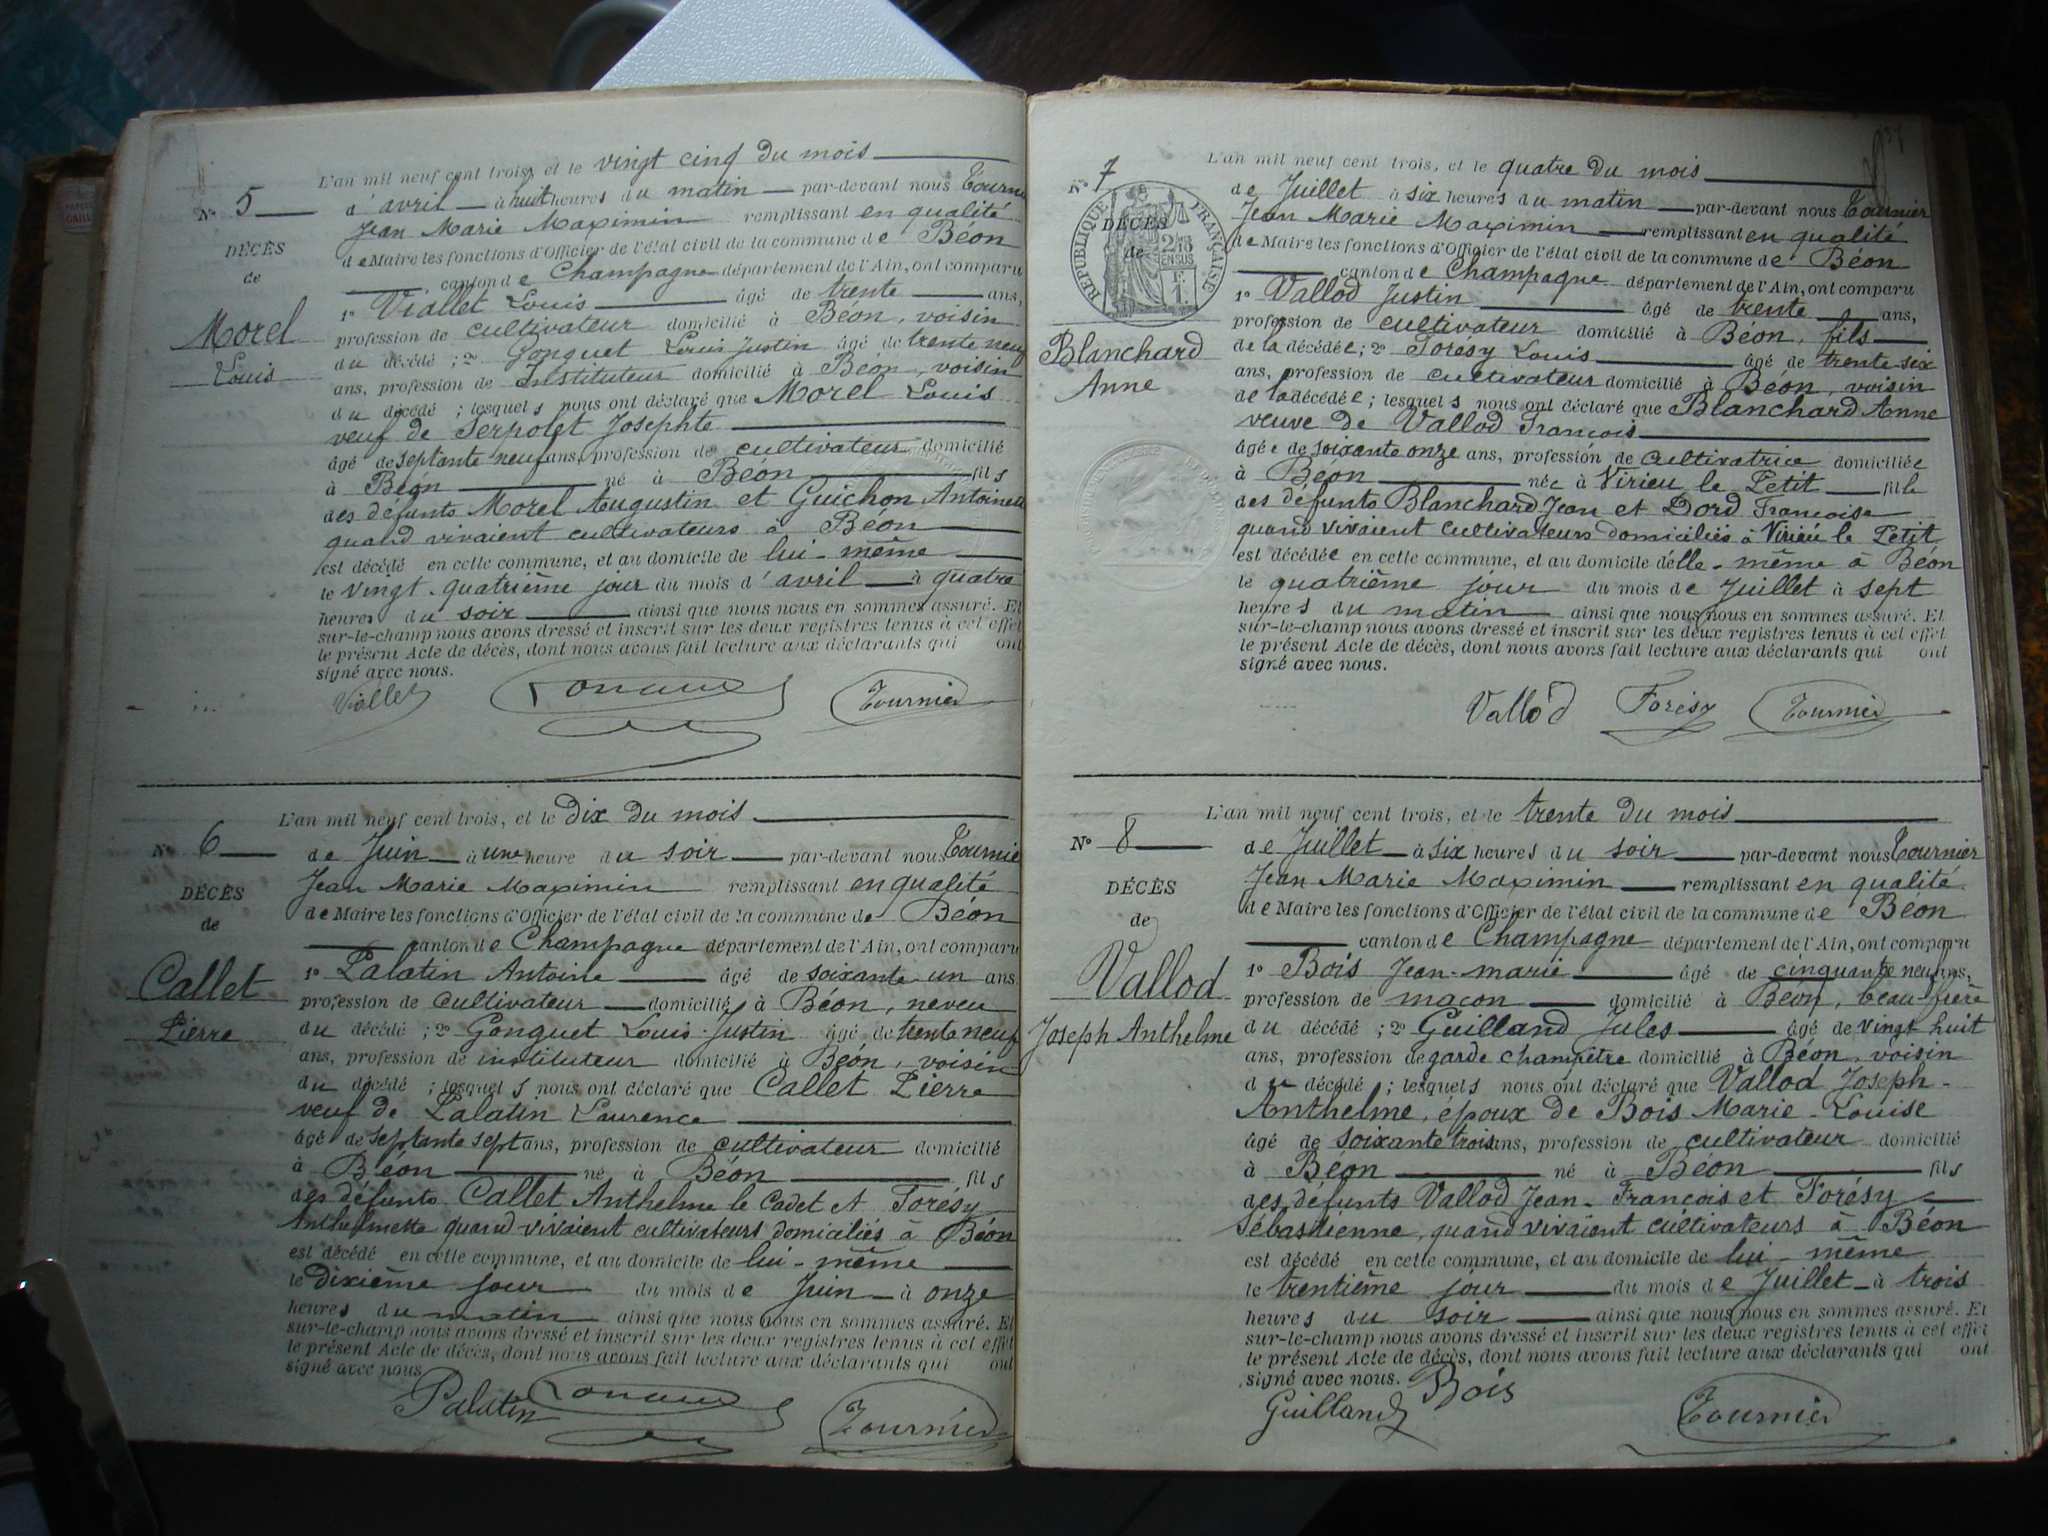 L'an mil neuf cent trois, et le vingt cinq du mois
No 5
d'avril à huit heures du matin par-devant nous Tournier
Jean Marie Maximin remplissant en qualité
DÉCÈS
de Maire les fonctions d'Officier de l'état civil de la commune de Béon
de
canton de Champagne département de l'Ain, ont comparu
1o Viallet Louis âgé de trente ans,
Morel
profession de cultivateur domicilié à Béon, voisin
Louis
du décédé ; 2o Gonguet Louis Justin âgé de trente neuf
ans, profession de Instituteur domicilié à Béon, voisin
du décédé ; lesquels nous ont déclaré que Morel Louis
veuf de Serpolet Josephte
âgé de septante neuf ans, profession de cultivateur domicilié
à Béon né à Béon fils
des défunts Morel Augustin et Guichon Antoinette
quand vivaient cultivateurs à Béon
est décédé en cette commune, et au domicile de lui-même
le vingt-quatrième jour du mois d'avril à quatre
heures du soir ainsi que nous nous en sommes assuré. Et
sur-le-champ nous avons dressé et inscrit sur les deux registres tenus à cet effet
le présent Acte de décès, dont nous avons fait lecture aux déclarants qui ont
signé avec nous.
Viallet Tournier
L'an mil neuf cent trois, et le dix du mois
No 6
de Juin à une heure du soir par-devant nous Tournier
Jean Marie Maximin remplissant en qualité
DÉCÈS
de Maire les fonctions d'Officier de l'état civil de la commune de Béon
de
canton de Champagne département de l'Ain, ont comparu
Callet
1o Palatin Antoine âgé de soixante un ans
profession de cultivateur domicilié à Béon, neveu
Pierre
du décédé ; 2o Gonguet Louis-Justin âgé de trente neuf
ans, profession de instituteur domicilié à Béon, voisin
du décédé ; lesquels nous ont déclaré que Callet Pierre
veuf de Palatin Laurence
âgé de septante sept ans, profession de cultivateur domicilié
à Béon né à Béon fils
des défunts Callet Anthelme le Cadet et Forésy
Anthelmette quand vivaient cultivateurs domiciliés à Béon
est décédé en cette commune, et au domicile de lui-même
le dixième jour du mois de Juin à onze
heures du matin ainsi que nous nous en sommes assuré. Et
sur-le-champ nous avons dressé et inscrit sur les deux registres tenus à cet effet
le présent Acte de décès, dont nous avons fait lecture aux déclarants qui ont
signé avec nous
Palatin Tournier
37
L'an mil neuf cent trois, et le quatre du mois
No 7
de Juillet à six heures du matin par-devant nous Tournier
Jean Marie Maximin remplissant en qualité
DÉCÈS
de Maire les fonctions d'Officier de l'état civil de la commune de Béon
de
RÉPUBLIQUE FRANÇAISE
canton de Champagne département de l'Ain, ont comparu
1o Vallod Justin âgé de trente ans,
profession de cultivateur domicilié à Béon, fils
Blanchard
de la décédée ; 2o Forésy Louis âgé de trente-six
Anne
ans, profession de cultivateur domicilié à Béon, voisin
de la décédée ; lesquels nous ont déclaré que Blanchard Anne
veuve de Vallod François
âgée de soixante onze ans, profession de cultivatrice domiciliée
à Béon née à Virieu le Petit fille
des défunts Blanchard Jean et Dord Françoise
quand vivaient cultivateurs domiciliés à Virieu le Petit
est décédée en cette commune, et au domicile d'elle-même à Béon
le quatrième jour du mois de Juillet à sept
heures du matin ainsi que nous nous en sommes assuré. Et
sur-le-champ nous avons dressé et inscrit sur les deux registres tenus à cet effet
le présent Acte de décès, dont nous avons fait lecture aux déclarants qui ont
signé avec nous.
Vallod Forésy Tournier
L'an mil neuf cent trois, et le trente du mois
No 8
de Juillet à six heures du soir par-devant nous Tournier
Jean Marie Maximin remplissant en qualité
DÉCÈS
de Maire les fonctions d'Officier de l'état civil de la commune de Béon
de
canton de Champagne département de l'Ain, ont comparu
Vallod
1o Bois Jean-marie âgé de cinquante neuf ans,
profession de maçon domicilié à Béon, beau-frère
Joseph Anthelme
du décédé ; 2o Guilland Jules âgé de vingt huit
ans, profession de garde champêtre domicilié à Béon, voisin
du décédé ; lesquels nous ont déclaré que Vallod Joseph-
Anthelme, époux de Bois Marie-Louise
âgé de soixante trois ans, profession de cultivateur domicilié
à Béon né à Béon fils
des défunts Vallod Jean-François et Forésy
Sébastienne, quand vivaient cultivateurs à Béon
est décédé en cette commune, et au domicile de lui-même
le trentième jour du mois de Juillet à trois
heures du soir ainsi que nous nous en sommes assuré. Et
sur-le-champ nous avons dressé et inscrit sur les deux registres tenus à cet effet
le présent Acte de décès, dont nous avons fait lecture aux déclarants qui ont
signé avec nous.
Guilland Bois Tournier